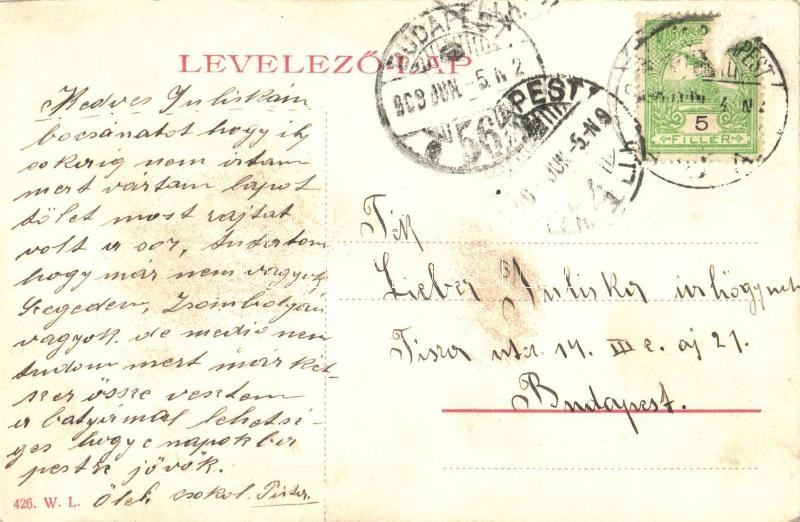 LEVELEZŐ-LAP
Kedves Juliskám
bocsánatot hogy ily
sokáig nem irtam
mert vártam lapot
tőlet most rajtat
volt a sor, tudattom
hogy már nem vagyok
Szegeden, Zsombolyán
vagyok. de meddig nem
tudom mert már két-
szer össze vesztem
a batyámal lehetsé-
ges hogy e napokba
pestre jövök.
Ölel csokol.
426. W. L.
BUDAPEST
909 JUN. -5. N 2
56
BUDAPEST
JUN. -5. N 9
5
FILLÉR
4 N 2
Lieber Juliska úrhölgynek
Tisza utz. 14. III e. aj 21.
Budapest.